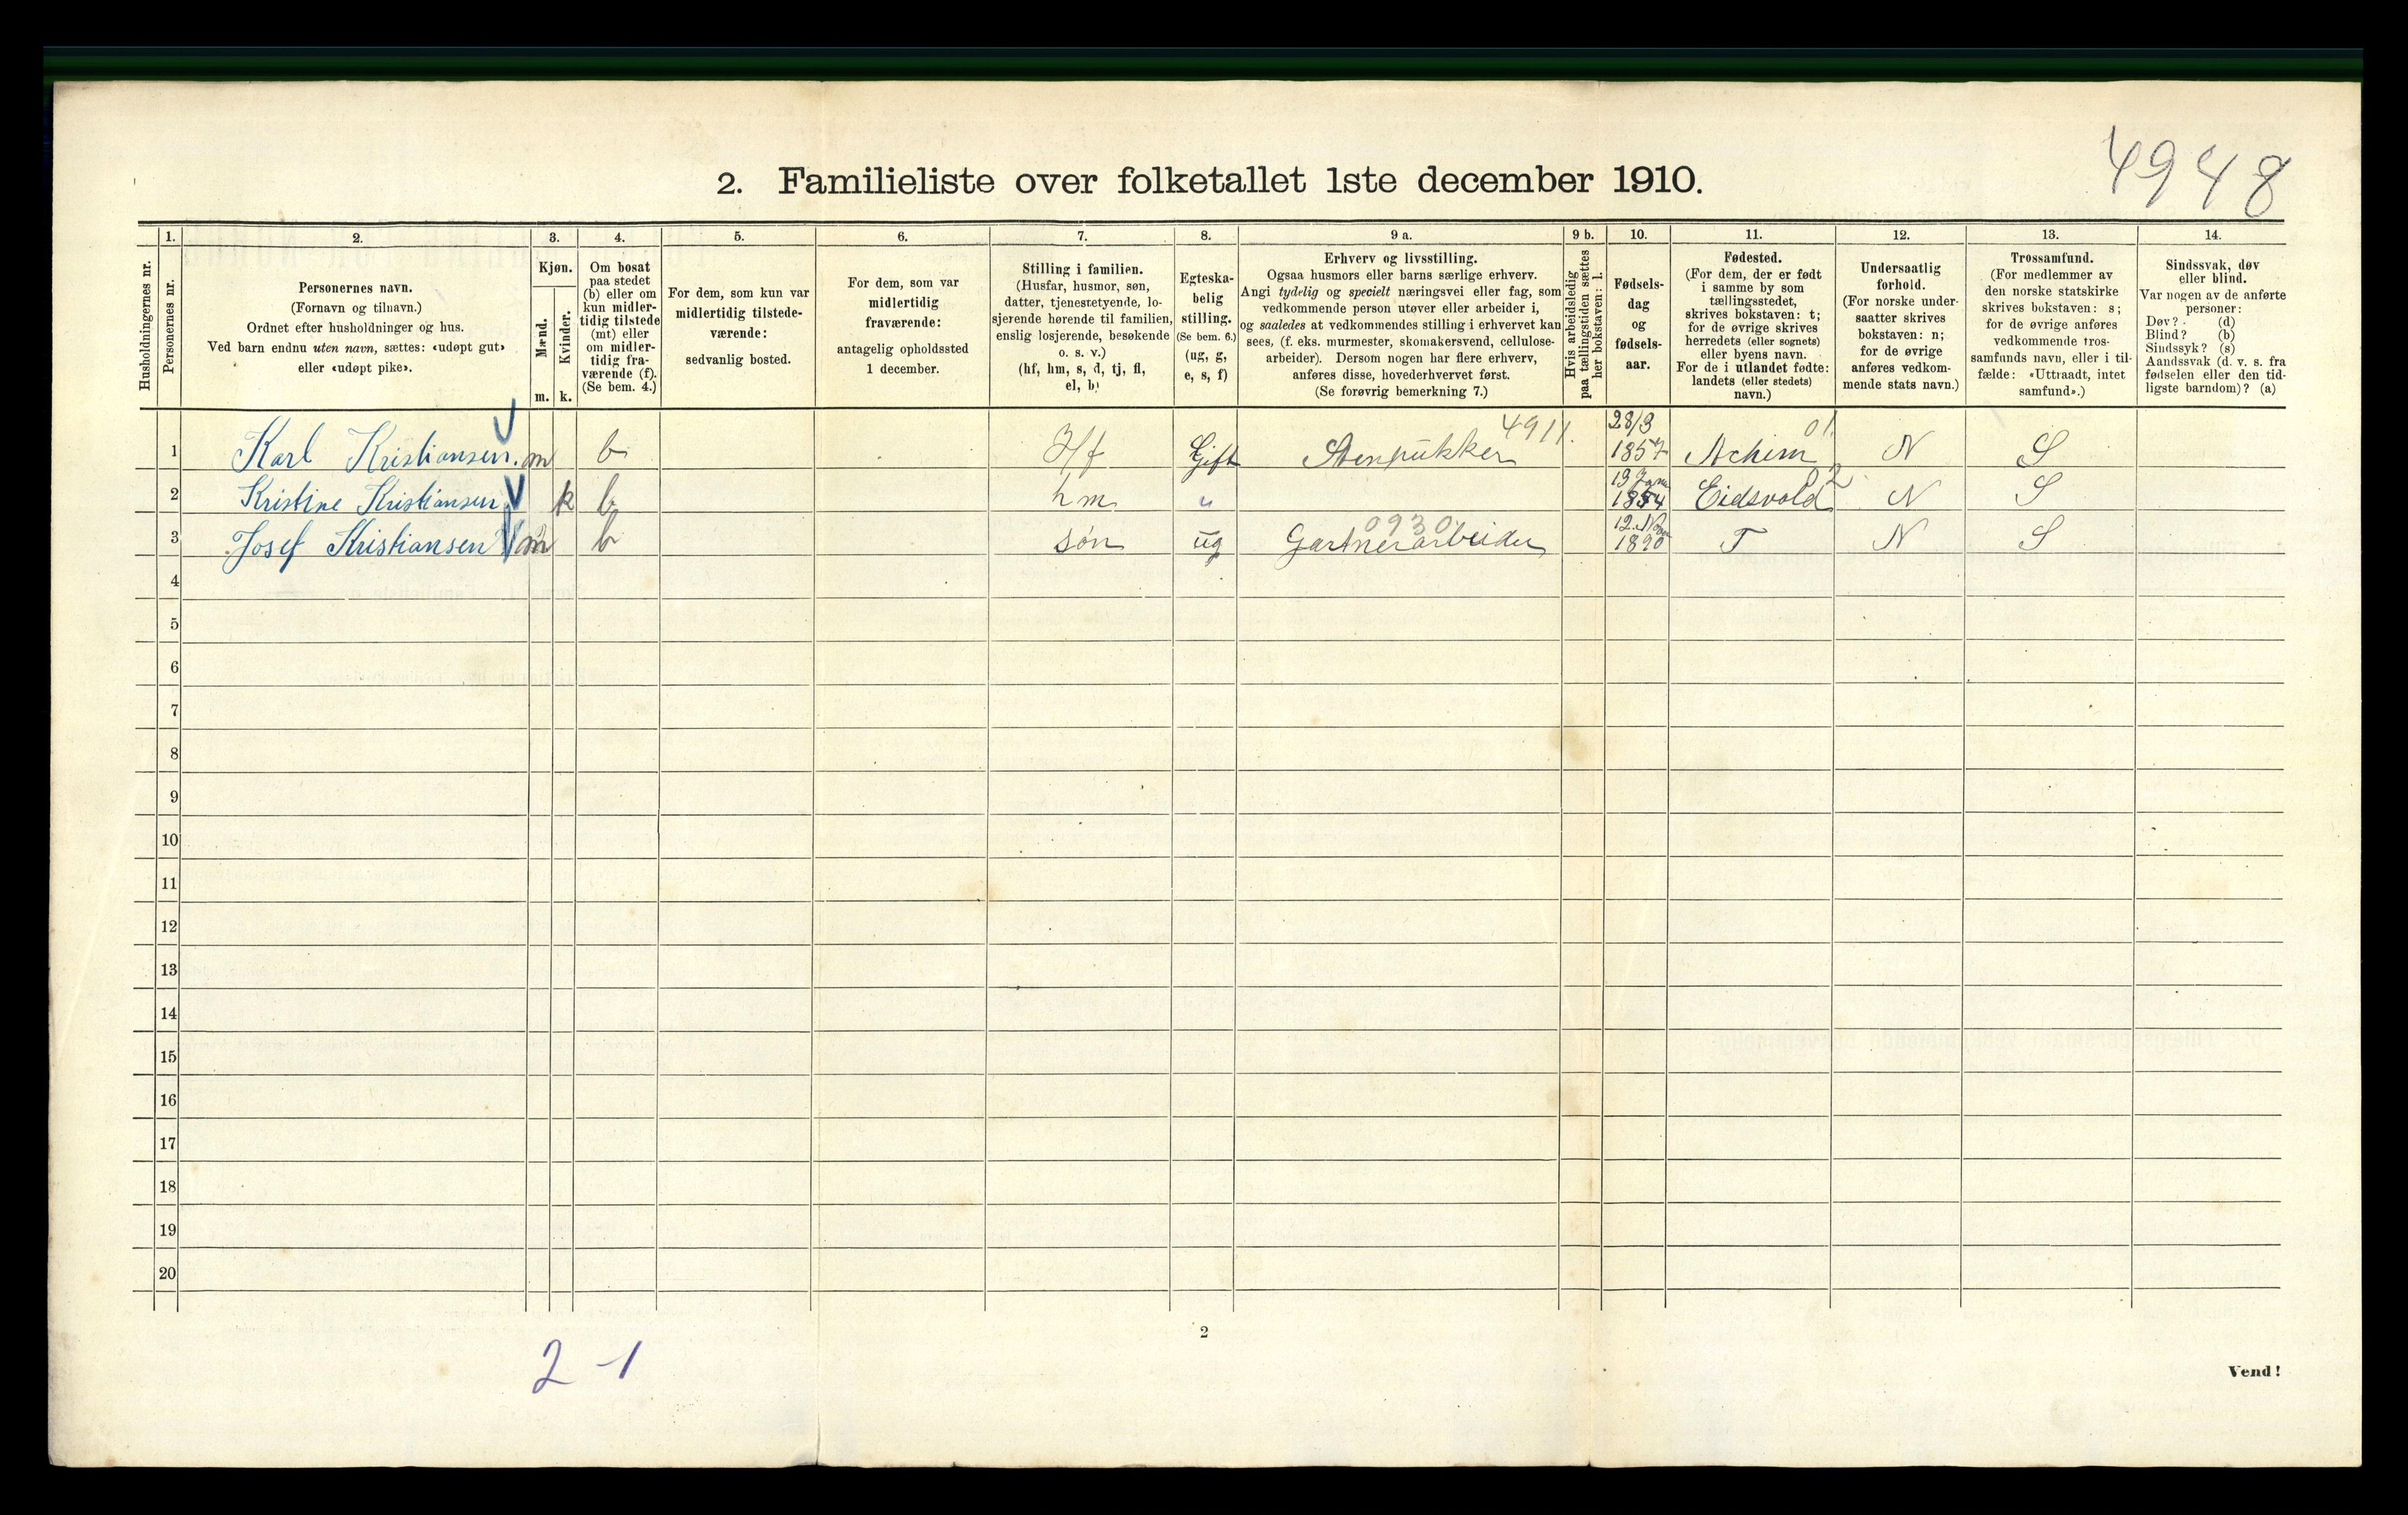 4948
2. Familieliste over folketallet 1ste december 1910.
Husholdningernes nr.
1.
Personernes nr.
2.
Personernes navn.
(Fornavn og tilnavn.)
Ordnet efter husholdninger og hus.
Ved barn endnu uten navn, sættes: «udøpt gut»
eller «udøpt pike».
3.
Kjøn.
Mænd.
Kvinder.
m.
k.
4.
Om bosat
paa stedet
(b) eller om
kun midler-
tidig tilstede
(mt) eller
om midler-
tidig fra-
værende (f).
(Se bem. 4.)
5.
For dem, som kun var
midlertidig tilstede-
værende:
sedvanlig bosted.
6.
For dem, som var
midlertidig
fraværende:
antagelig opholdssted
1 december.
7.
Stilling i familien.
(Husfar, husmor, søn,
datter, tjenestetyende, lo-
sjerende hørende til familien,
enslig losjerende, besøkende
o. s. v.)
(hf, hm, s, d, tj, fl,
el, b)
8.
Egteska-
belig
stilling.
(Se bem. 6.)
(ug, g,
e, s, f)
9 a.
Erhverv og livsstilling.
Ogsaa husmors eller barns særlige erhverv.
Angi tydelig og specielt næringsvei eller fag, som
vedkommende person utøver eller arbeider i,
og saaledes at vedkommendes stilling i erhvervet kan
sees, (f. eks. murmester, skomakersvend, cellulose-
arbeider). Dersom nogen har flere erhverv,
anføres disse, hovederhvervet først.
(Se forøvrig bemerkning 7.)
9 b.
Hvis arbeidsledig
paa tællingstiden sættes
her bokstaven: l.
10.
Fødsels-
dag
og
fødsels-
aar.
11.
Fødested.
(For dem, der er født
i samme by som
tællingsstedet,
skrives bokstaven: t;
for de øvrige skrives
herredets (eller sognets)
eller byens navn.
For de i utlandet fødte:
landets (eller stedets)
navn.)
12.
Undersaatlig
forhold.
(For norske under-
saatter skrives
bokstaven: n;
for de øvrige
anføres vedkom-
mende stats navn.)
13.
Trossamfund.
(For medlemmer av
den norske statskirke
skrives bokstaven: s;
for de øvrige anføres
vedkommende tros-
samfunds navn, eller i til-
fælde: «Uttraadt, intet
samfund».)
14.
Sindssvak, døv
eller blind.
Var nogen av de anførte
personer:
Døv? (d)
Blind? (b)
Sindssyk? (s)
Aandssvak (d. v. s. fra
fødselen eller den tid-
ligste barndom)? (a)
1 Karl Kristiansen. m b Hf Gift Stenpukker 4911. 28/3 1857 Achim 01 N S
2 Kristine Kristiansen k b hm " 19 Janu 1854 Eidsvold 2 N S
3 Josef Kristiansen m b søn ug Gartnerarbeider 0930 12. Nov 1890 T N S
4
5
6
7
8
9
10
11
12
13
14
15
16
17
18
19
20
2
2-1
Vend!